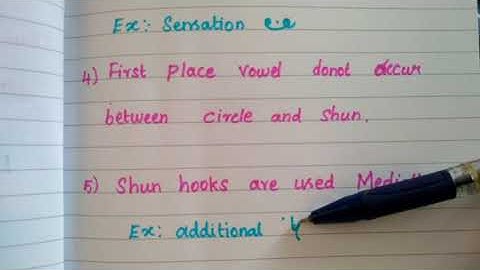 Ex:- Sensation
4) First place vowel donot occur
between circle and shun.
5) Shun hooks are used
Ex: additional